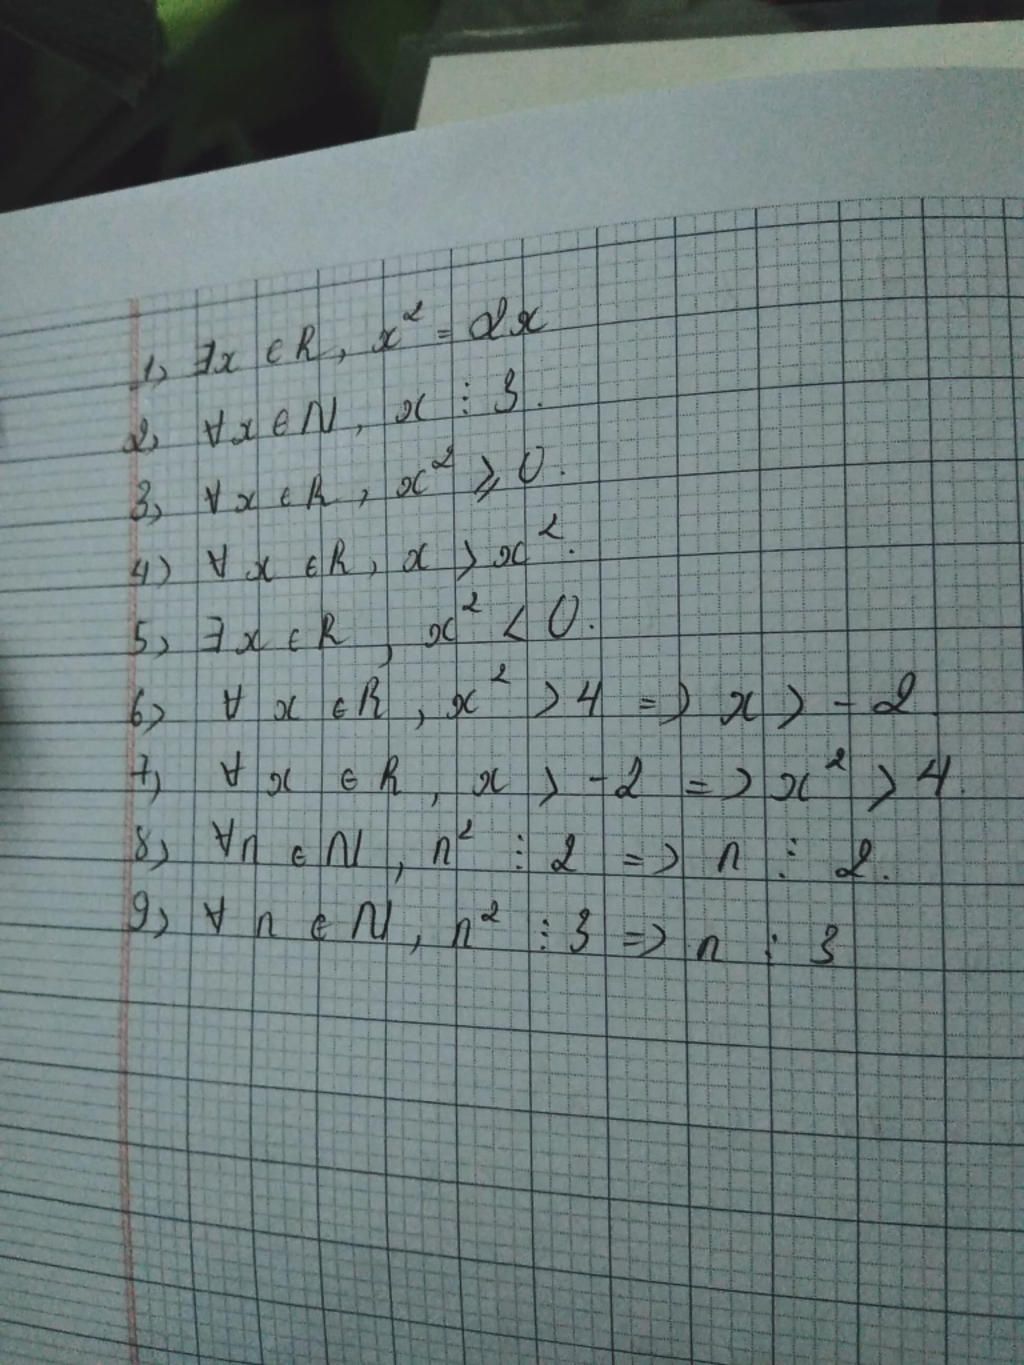 1, ∃x ∈ R, x² = 2x
2, ∀x ∈ N, x ⋮ 3.
3, ∀x ∈ R, x² ⩾ 0.
4) ∀x ∈ R, x > x².
5, ∃x ∈ R, x² < 0.
6) ∀x ∈ R, x² > 4 => x > -2
7, ∀x ∈ R, x > -2 => x² > 4.
8) ∀n ∈ N, n² ⋮ 2 => n ⋮ 2.
9) ∀n ∈ N, n² ⋮ 3 => n ⋮ 3